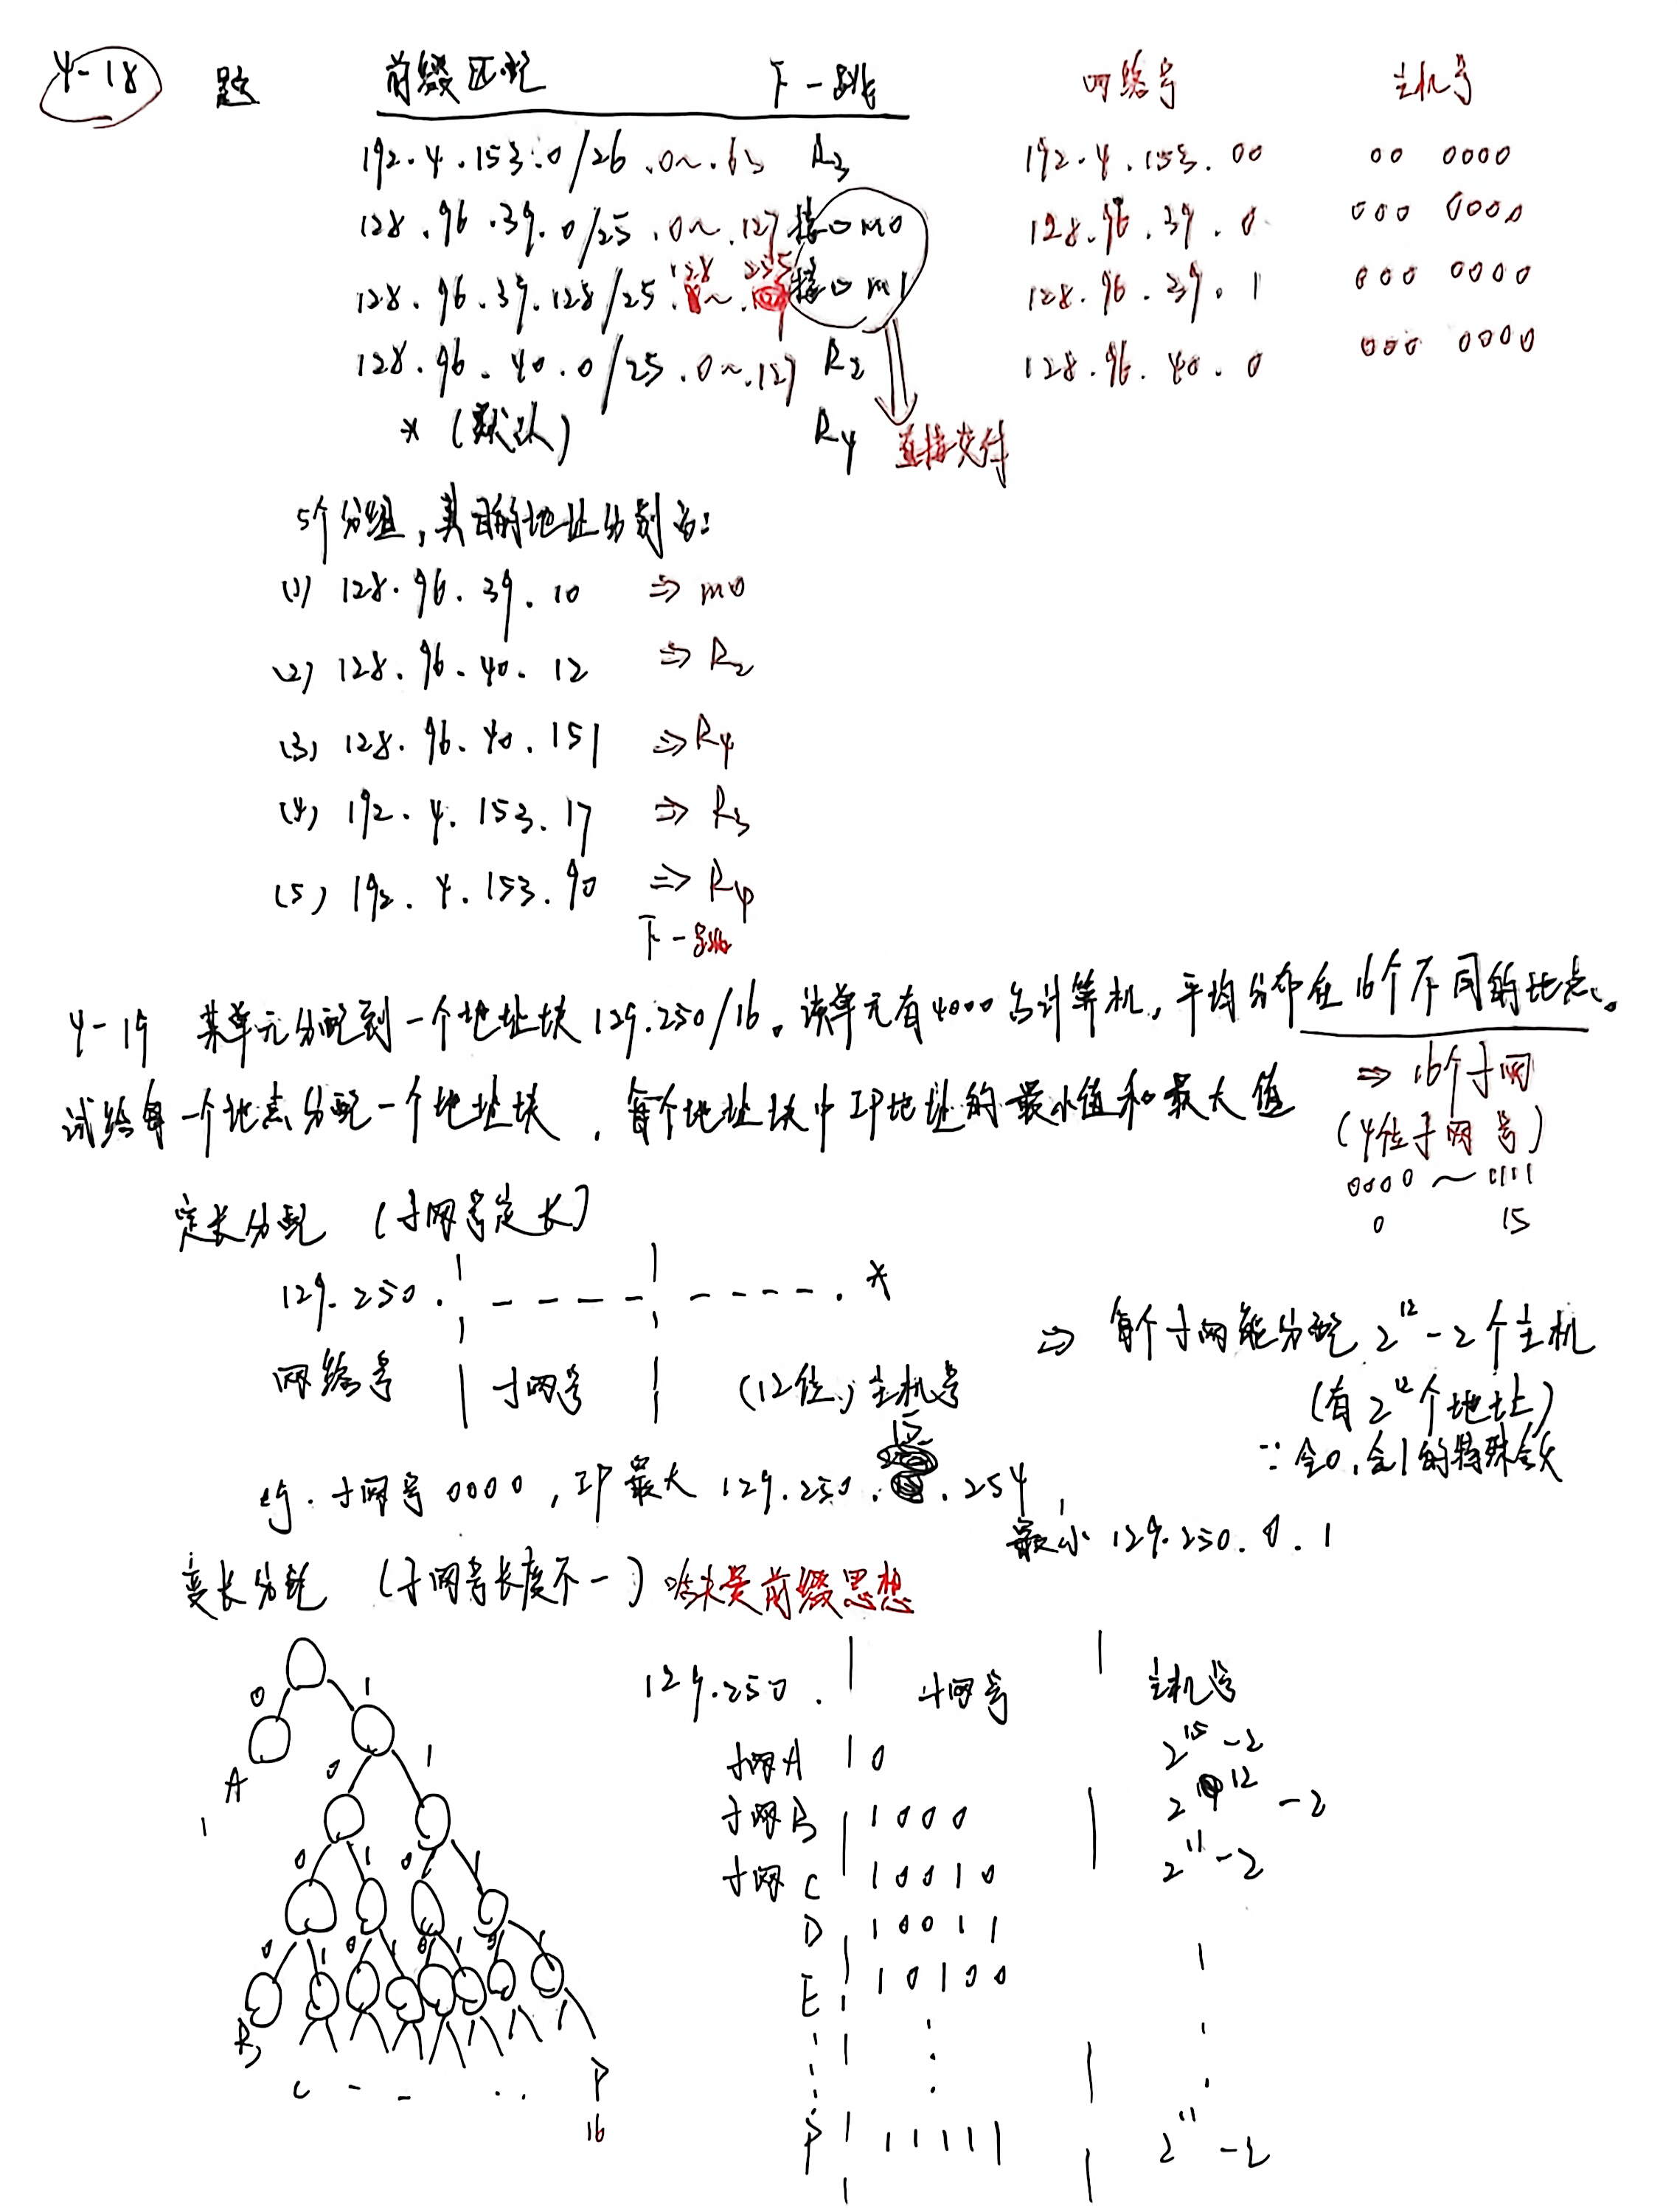 4-18 题 前缀匹配 下一跳 网络号 主机号
192.4.153.0/26 .0~.63 R3 192.4.153.00 00 0000
128.96.39.0/25 .0~.127 接口m0 128.96.39.0 000 0000
128.96.39.128/25 .128~.255 接口m1 128.96.39.1 000 0000
128.96.40.0/25 .0~.127 R2 128.96.40.0 000 0000
* (默认) R4 直接交付
5个分组,其目的地址分别为:
(1) 128.96.39.10 ⇒ m0
(2) 128.96.40.12 ⇒ R2
(3) 128.96.40.151 ⇒ R4
(4) 192.4.153.17 ⇒ R3
(5) 192.4.153.90 ⇒ R4
下一跳
4-19 某单元分配到一个地址块129.250/16。该单元有4000台计算机,平均分布在16个不同的地点。
⇒ 16个子网
试给每一个地点分配一个地址块,每个地址块中IP地址的最小值和最大值
(4位子网号)
0000 ~ 1111
0 15
定长分配 (子网号定长)
129.250. | _ _ _ _ | _ _ _ _ . *
网络号 | 子网号 | (12位) 主机号
⇒ 每个子网能分配 2^12-2个主机
(有2^12个地址)
∵全0,全1的特殊含义
eg. 子网号0000, IP最大 129.250.15.254,
最小 129.250.0.1
变长分配 (子网号长度不一) 前缀思想
129.250. | 子网号 | 主机号
子网A | 0 2^15-2
子网B | 1000 | 2^12-2
子网C | 10010 2^11-2
D | 10011
E | 10100
P | 11111 | 2^11-2
0 1
A 0 1
0 1 0 1
0 1 0 1 0 1 0 1
B
C - - . . P
16